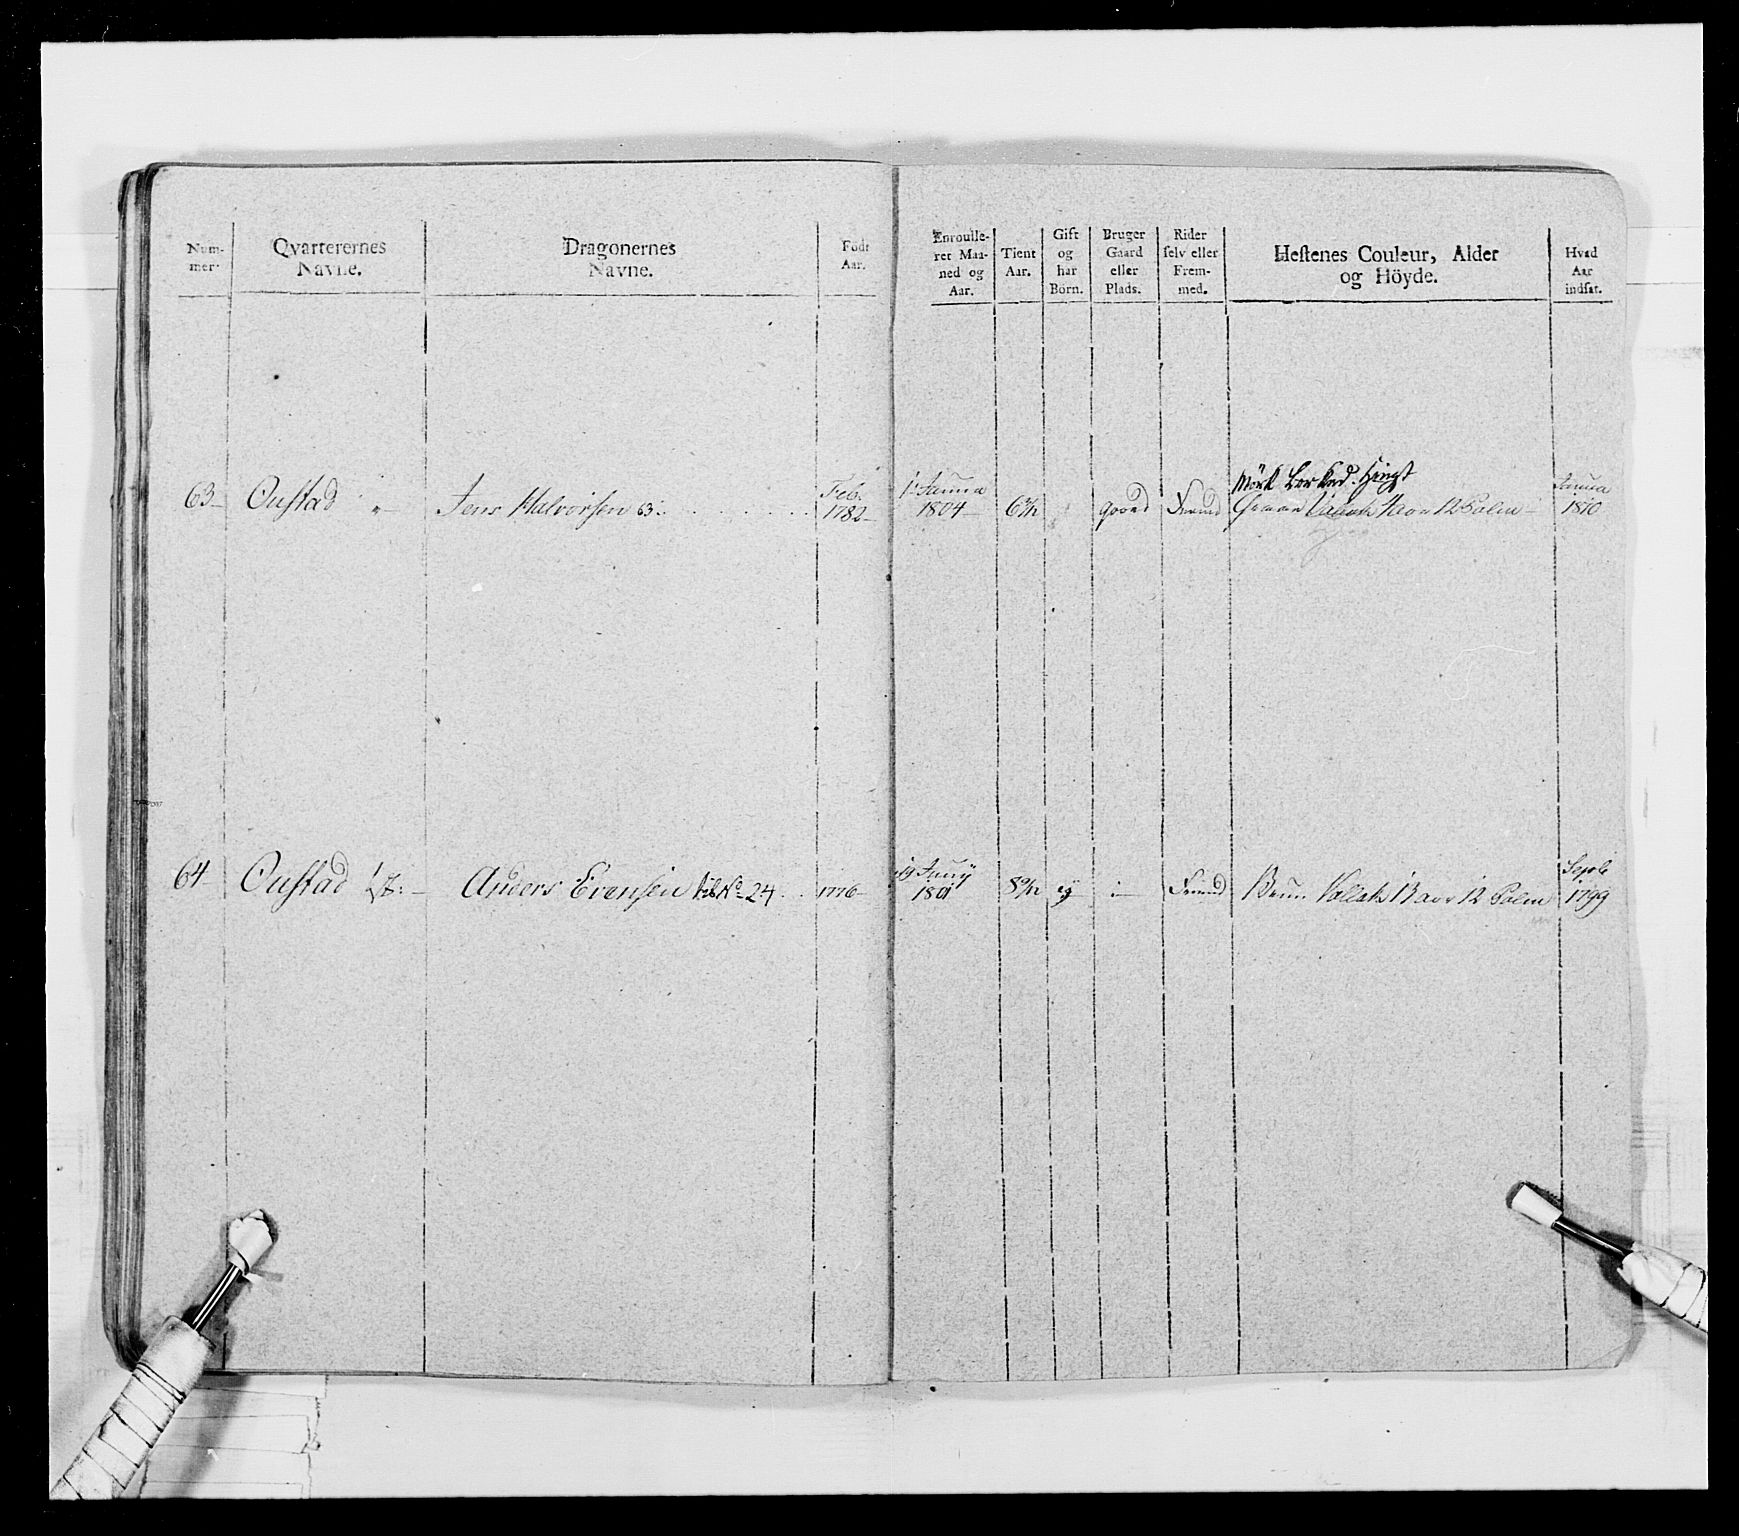 Num-
mer.
Qvarterernes
Navne.
Dragonernes
Navne.
Födt
Aar.
Enroulle-
ret Maa-
ned og
Aar.
Tient
Aar.
Gift
og
har
Börn.
Bruger
Gaard
eller
Plads.
Rider
selv eller
Frem-
med.
Hestenes Couleur, Alder
og Höyde.
Hvad
Aar
indsat.
63 Oustad Jens Halvorsen 63. Feb.
1782 1 Janua
1804 Gaard Fremd Mörk Hingst
12 Palm Janua
1810
64 Oustad Anders Evensen No 24 1776
1801 ey Fremd Brun Vallak 13 aar 12 Palm Septb
1799